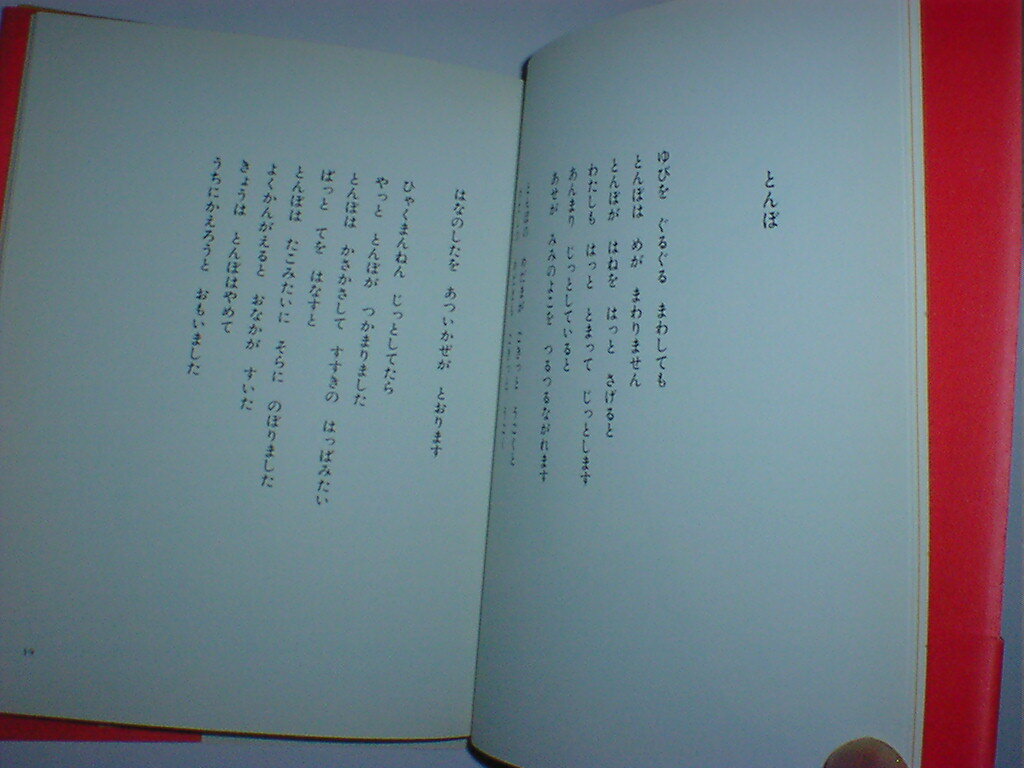 とんぼ
ゆびを ぐるぐる まわしても
とんぼは めが まわりません
とんぼが はねを はっと さげると
わたしも はっと とまって じっとします
あんまり じっとしていると
あせが みみのよこを つるつるながれます
はなのしたを あついかぜが とおります
ひゃくまんねん じっとしてたら
やっと とんぼが つかまりました
とんぼは かさかさして すすきの はっぱみたい
ぱっと てを はなすと
とんぼは たこみたいに そらに のぼりました
よくかんがえると おなかが すいた
きょうは とんぼはやめて
うちにかえろうと おもいました